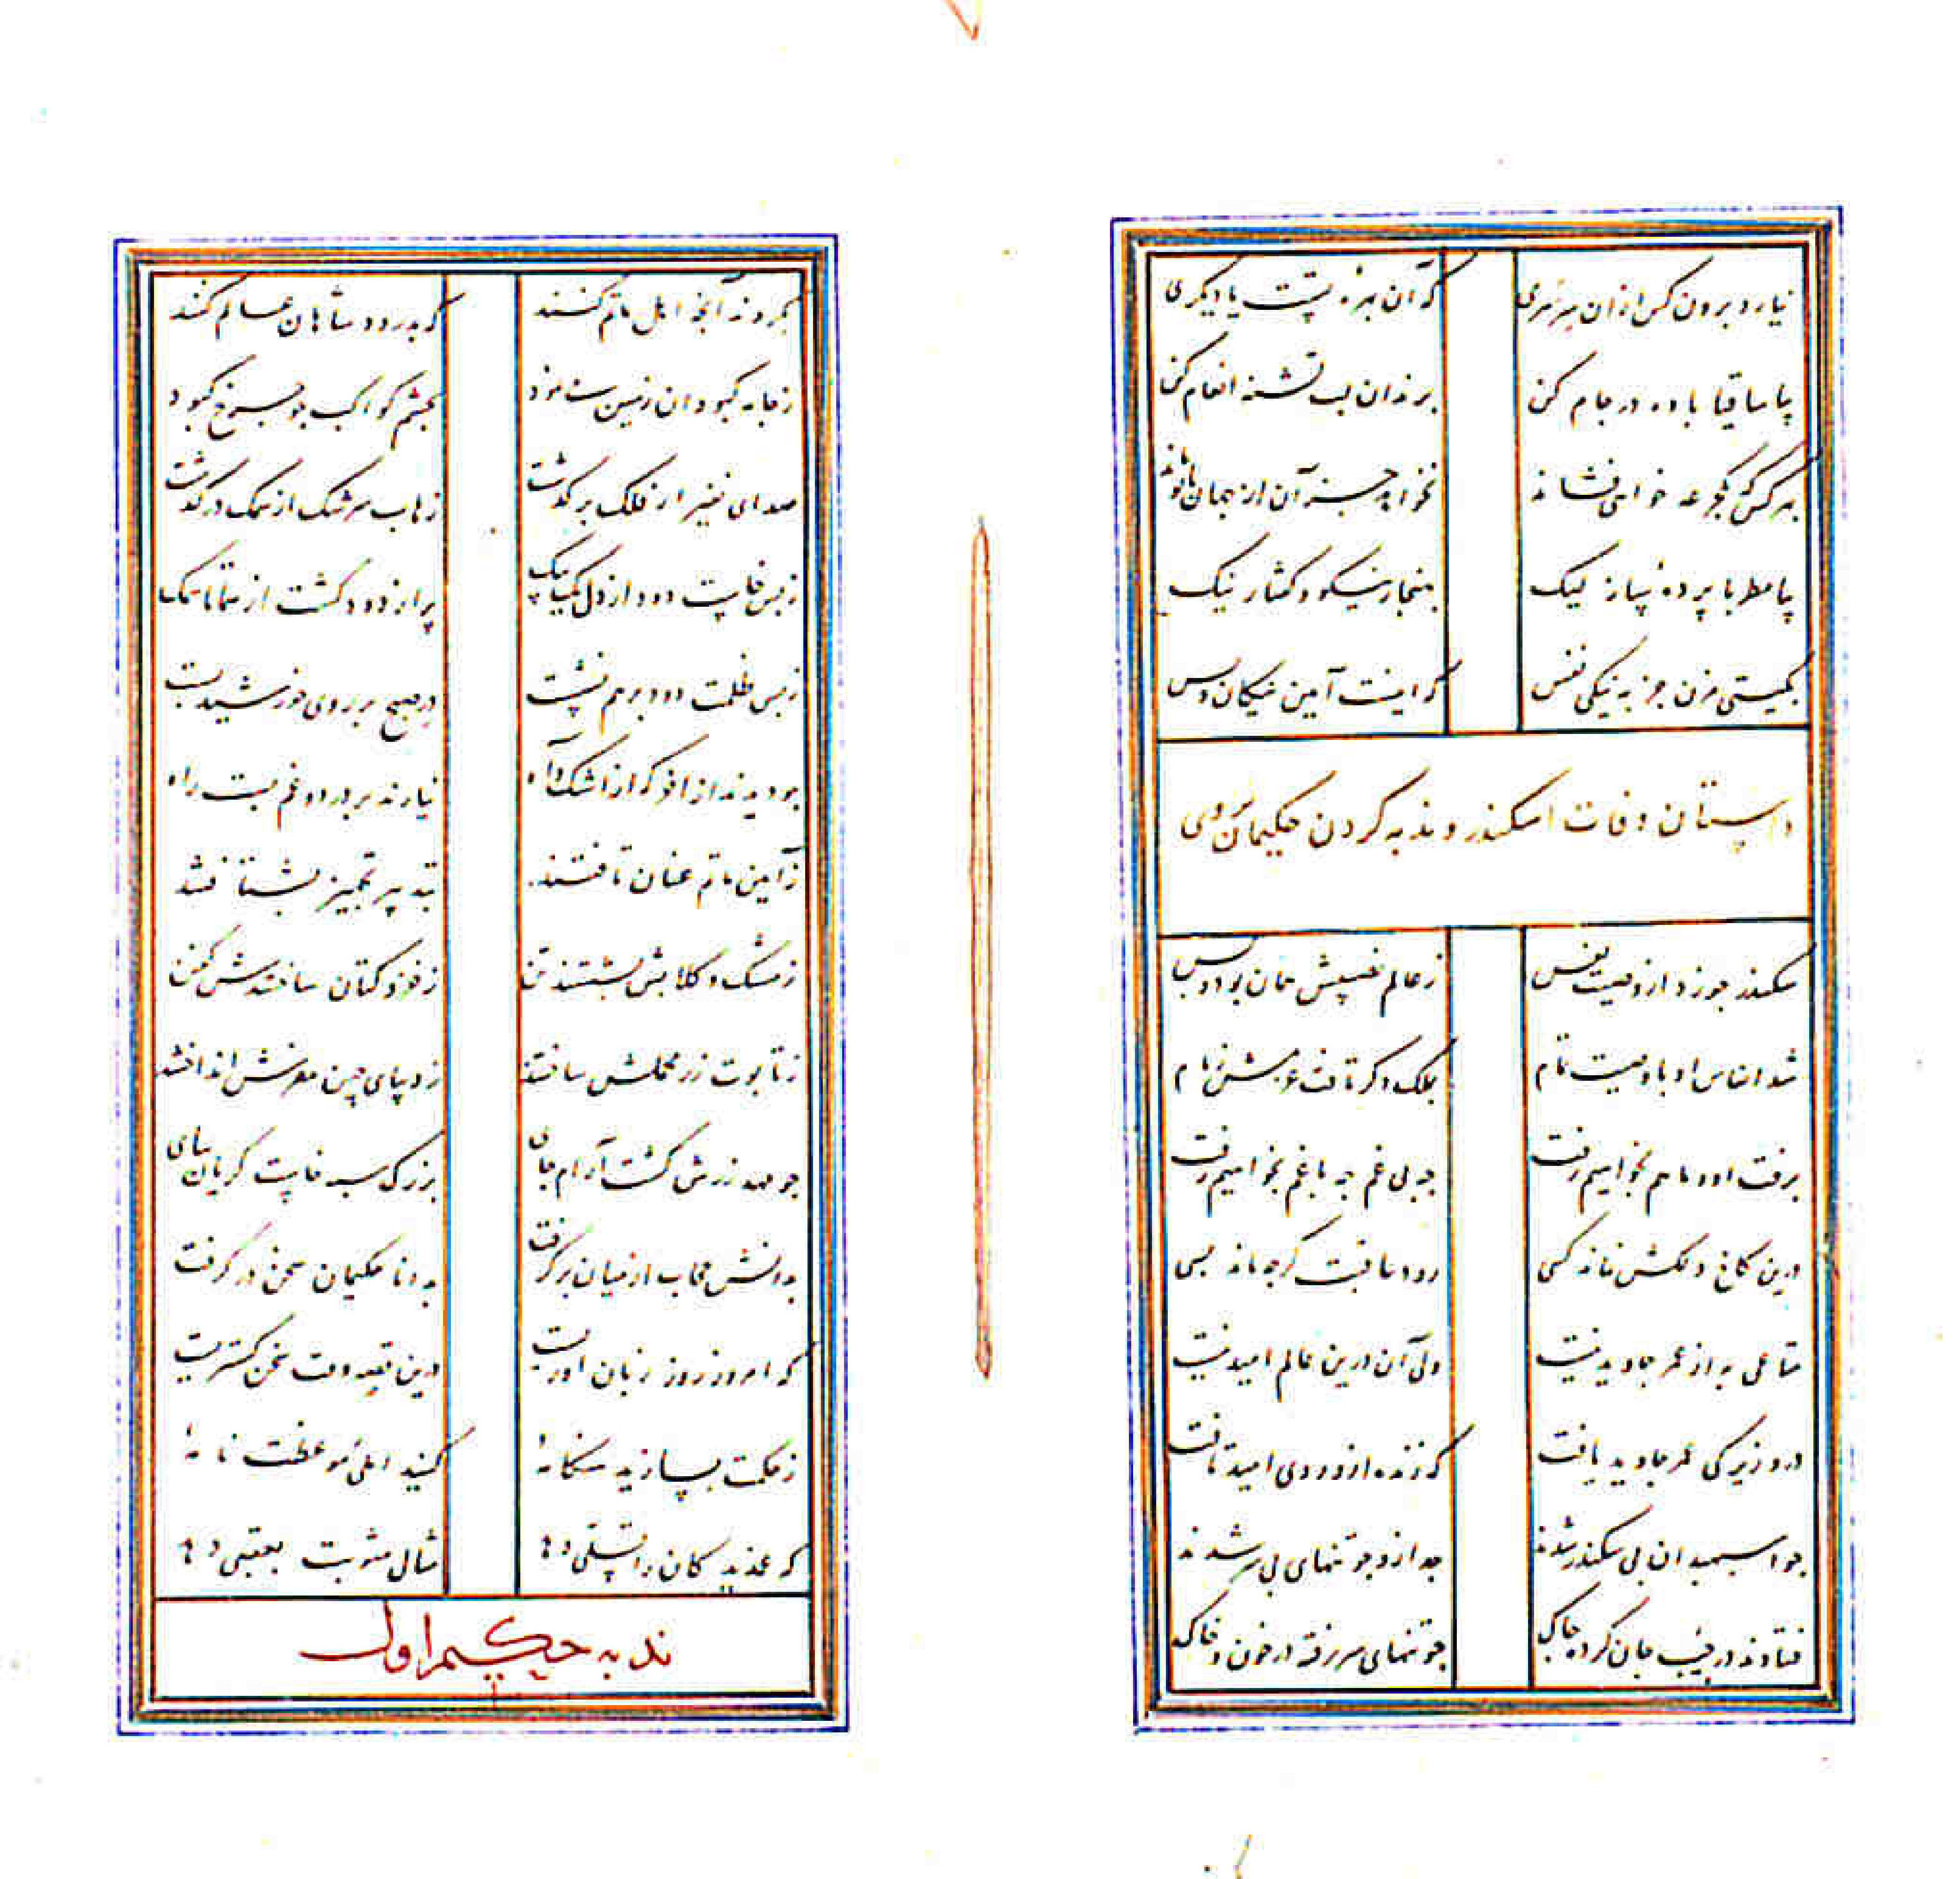 نیارد برون کس ازان سر سری که آن بهره تست یا دیگری
بیا ساقیا باده در جام کن برندان لب تشنه انعام کن
بهر کس که یکجرعه خواهی فشاند نخواهد جز آن از جهان با تو ماند
بیا مطربا پرده بساز لیک بهنجار نیکو و گفتار نیک
بگیتی مزن جز به نیکی نفس که اینست آیین نیکان و بس
داستان وفات اسکندر و ندبه کردن حکیمان بروی
سکندر چو زد از وصیت نفس ز عالم نصیبش همان بود و بس
شد انفاس او با وصیت تمام بملک دگر تافت عزمش زمام
برفت او و ما هم بخواهیم رفت چه بی غم چه با غم بخواهیم رفت
درین کاخ دلکش نماند کسی رود عاقبت گرچه ماند بسی
متاعی به از عمر جاوید نیست ولی آن درین عالم امید نیست
درو زیرکی عمر جاوید یافت که زنده ازو روی امید تافت
جو اسپهبدان بی سکندر شدند جدا زو جو تنهای بی سر شدند
فتادند در جیب جان کرده چاک جو تنهای سر رفته در خون و خاک
بکردند آنچه اهل ماتم کنند که بدرود شاهان عالم کنند
ز جامه کبودان زمین می نمود بچشم کواکب جو چرخ کبود
صدای نفیر از فلک برگذشت زهاب سرشک از سمک درگذشت
ز بس خاست دود از دل یک بیک پر از دود گشت از سما تا سمک
ز بس ظلمت دود بر هم نشست در صبح بر روی خورشید بست
جو دیدند از آخر که از اشک و آه نیارند بر درد و غم بست راه
ز آیین ماتم عنان تافتند بتدبیر تجهیز بشتافتند
ز مشک و گلابش بشستند تن ز خز و کتان ساختندش کفن
ز تابوت زر محملش ساختند ز دیبای چین مفرش انداختند
جو مهد زرش گشت آرام جای بزرگی سبه خاست گریان بپای
بدانش حجاب از میان برگرفت به دانا حکیمان سخن درگرفت
که امروز روز زبان آوریست درین قصه وقت سخن گستریست
ز حکمت بسازید هنگامه‌ا کنید املی موعظت نامه‌ا
که غمدیدگان را تسلی دها مثال مثوبت بعقبی دها
ندبه حکیم اول